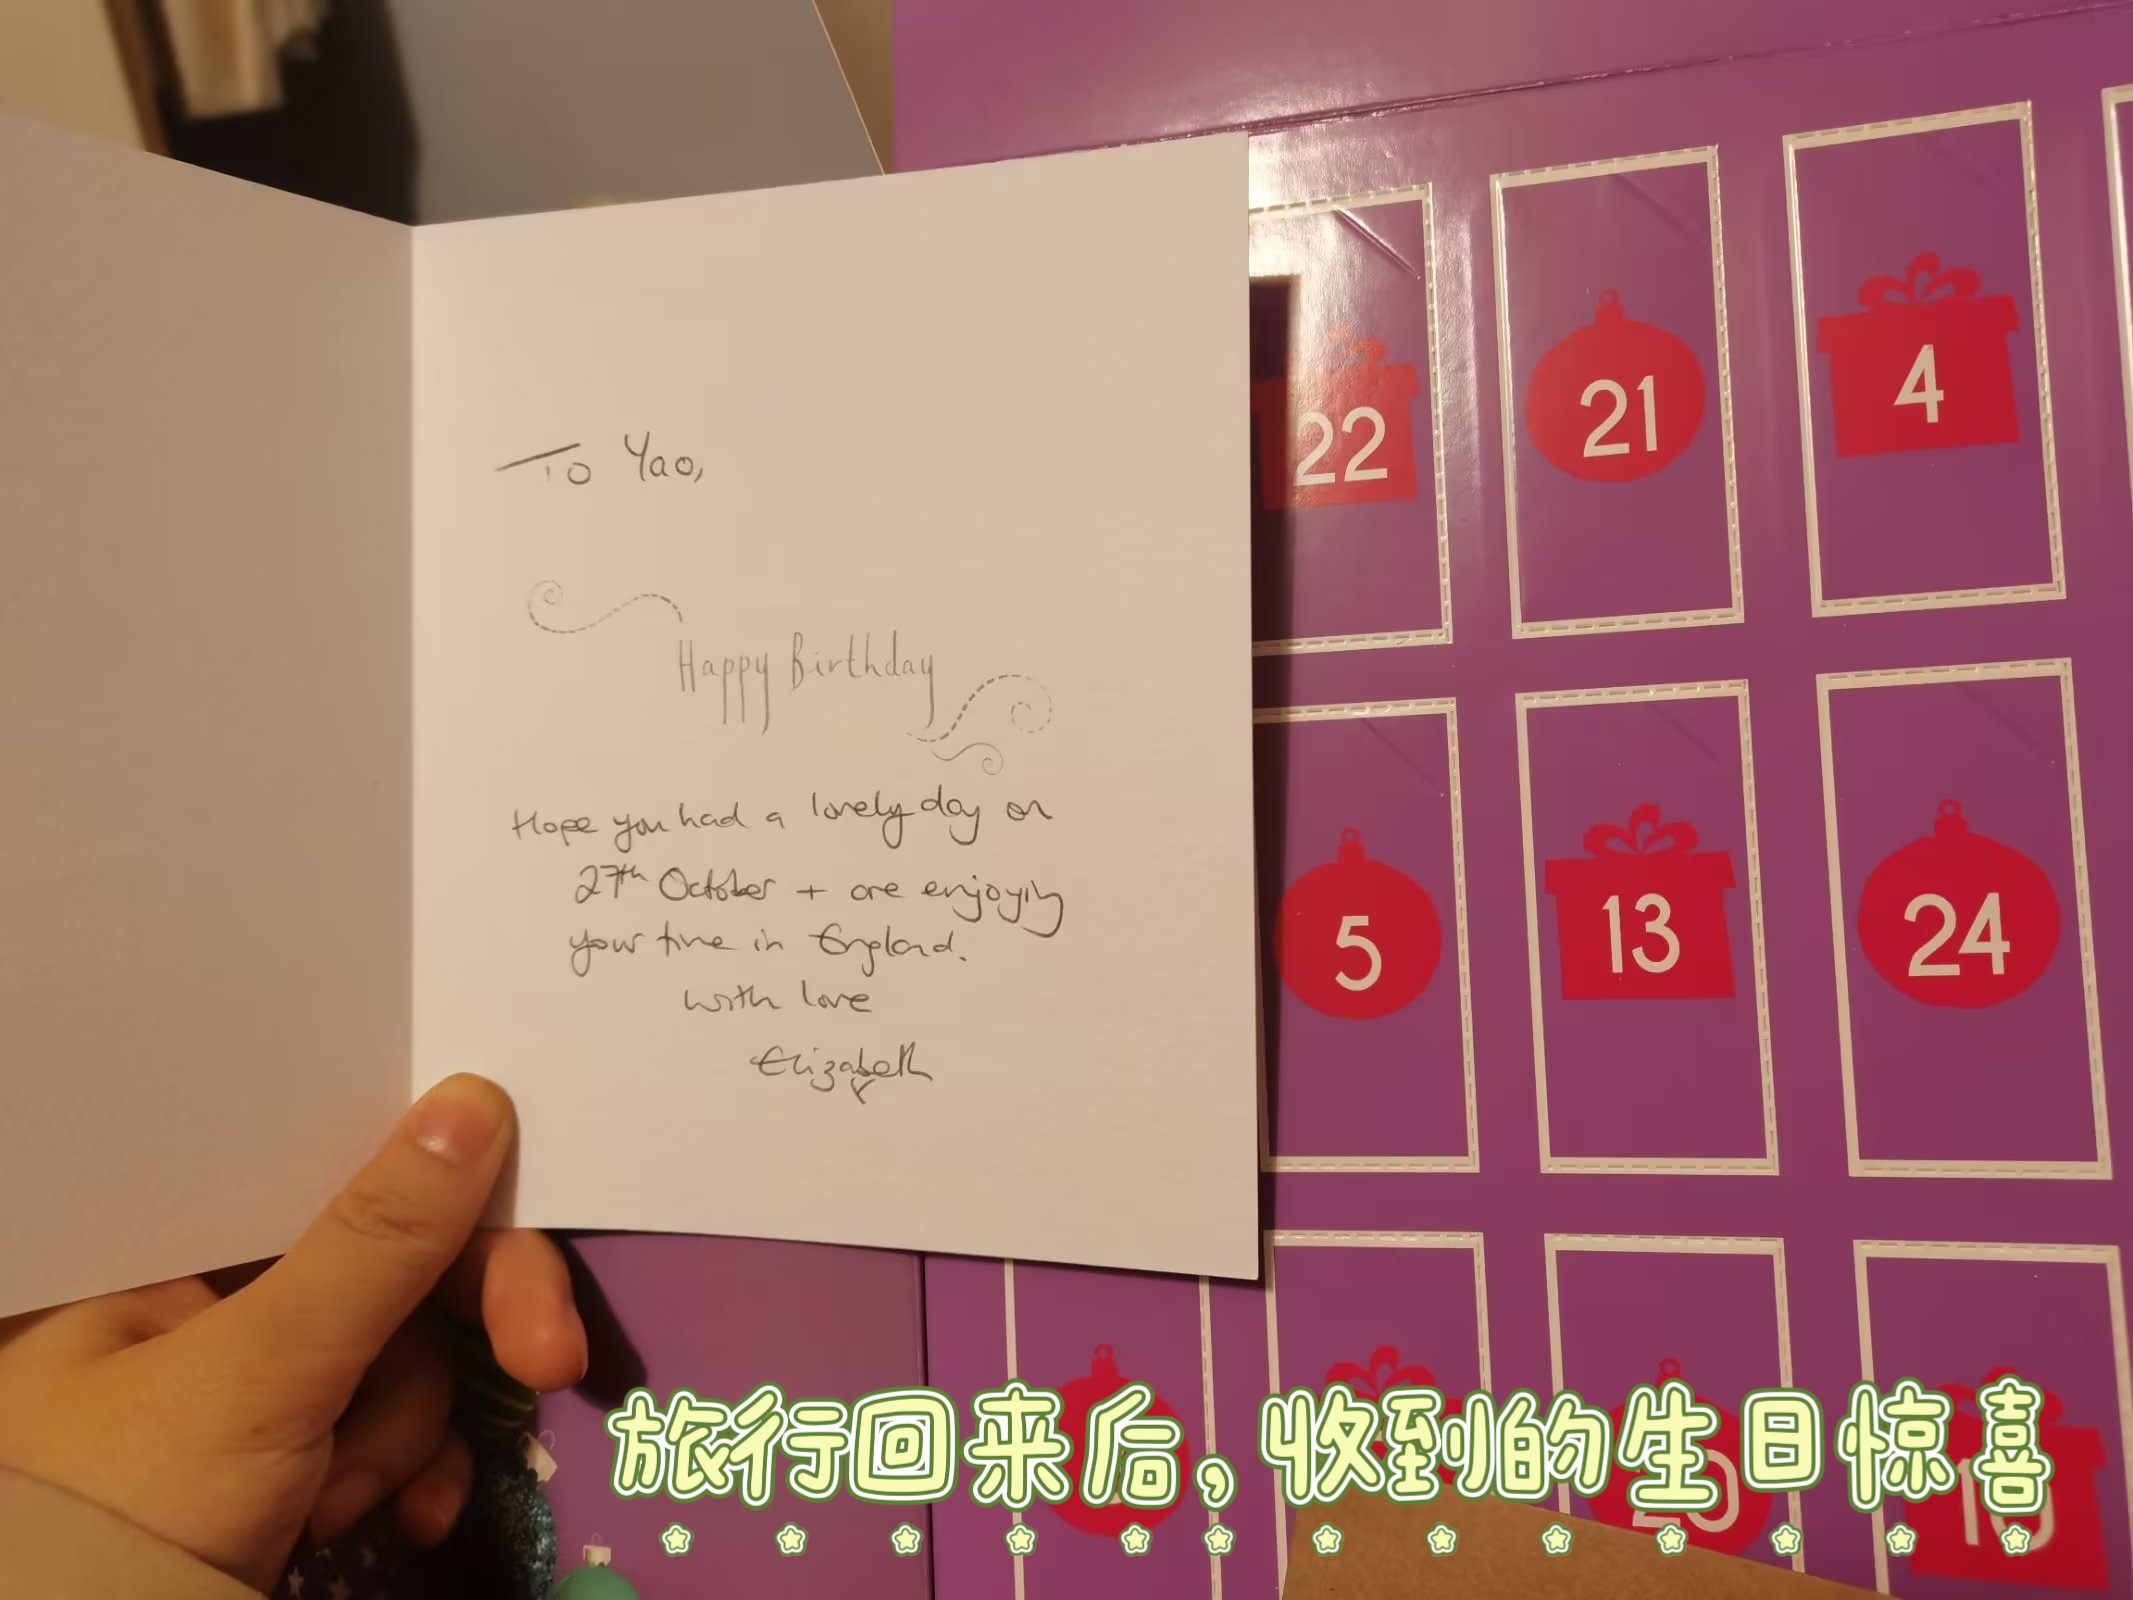 To Yao,
Happy Birthday
Hope you had a lovely day on
27th October + are enjoying
your time in England.
with love
Elizabeth
22
21
4
5
13
24
20
旅行回来后，收到的生日惊喜